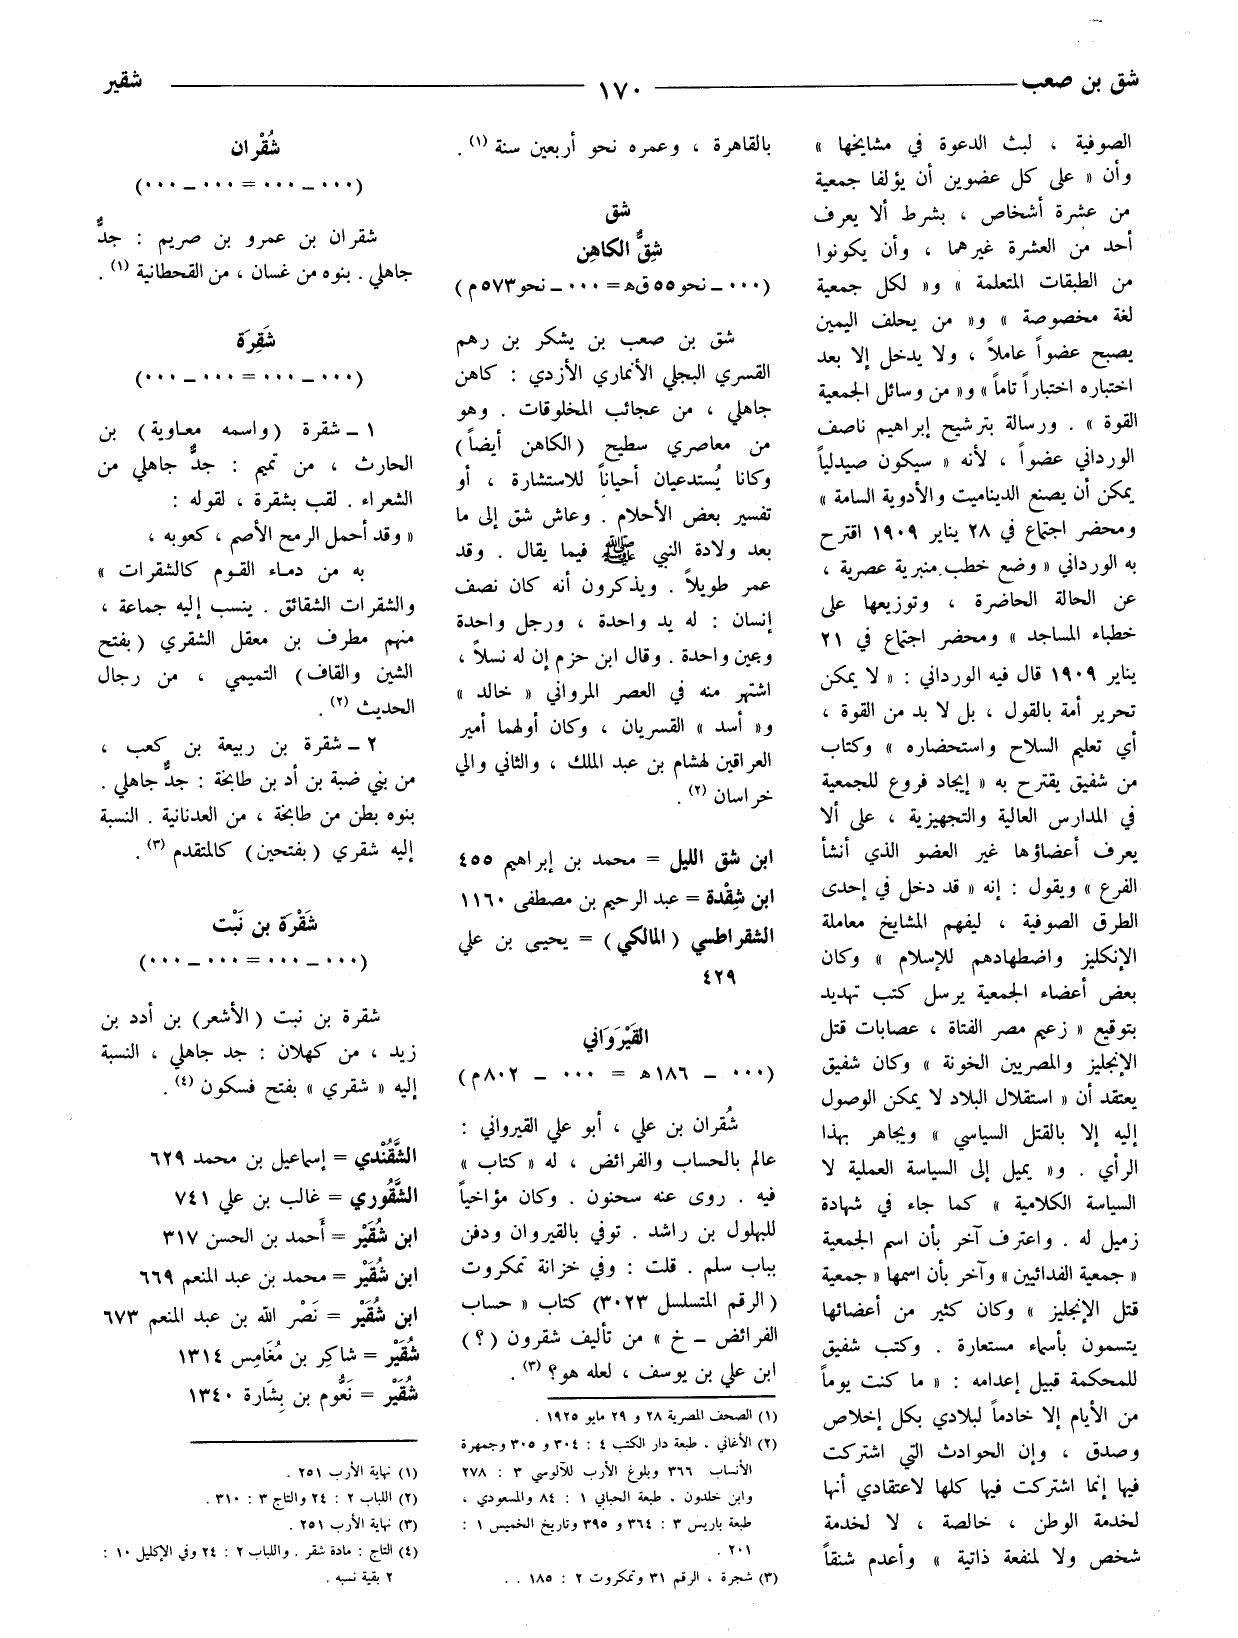 شق بن صعب ١٧٠ شقير
الصوفية ، لبث الدعوة في مشايخها »
وأن « على كل عضوين أن يؤلفا جمعية
من عشرة أشخاص ، بشرط ألا يعرف
أحد من العشرة غيرهما ، وأن يكونوا
من الطبقات المتعلمة » و« لكل جمعية
لغة مخصوصة » و« من يحلف اليمين
يصبح عضواً عاملاً ، ولا يدخل إلا بعد
اختباره اختباراً تاماً » و« من وسائل الجمعية
القوة » . ورسالة بترشيح إبراهيم ناصف
الورداني عضواً ، لأنه « سيكون صيدلياً
يمكن أن يصنع الديناميت والأدوية السامة »
ومحضر اجتماع في ٢٨ يناير ١٩٠٩ اقترح
به الورداني « وضع خطب منبرية عصرية ،
عن الحالة الحاضرة ، وتوزيعها على
خطباء المساجد » ومحضر اجتماع في ٢١
يناير ١٩٠٩ قال فيه الورداني : « لا يمكن
تحرير أمة بالقول ، بل لا بد من القوة ،
أي تعليم السلاح واستحضاره » وكتاب
من شفيق يقترح به « إيجاد فروع للجمعية
في المدارس العالية والتجهيزية ، على ألا
يعرف أعضاؤها غير العضو الذي أنشأ
الفرع » ويقول : إنه « قد دخل في إحدى
الطرق الصوفية ، ليفهم المشايخ معاملة
الإنكليز واضطهادهم للإسلام » وكان
بعض أعضاء الجمعية يرسل كتب تهديد
بتوقيع « زعيم مصر الفتاة ، عصابات قتل
الإنجليز والمصريين الخونة » وكان شفيق
يعتقد أن « استقلال البلاد لا يمكن الوصول
إليه إلا بالقتل السياسي » ويجاهر بهذا
الرأي . و« يميل إلى السياسة العملية لا
السياسة الكلامية » كما جاء في شهادة
زميل له . واعترف آخر بأن اسم الجمعية
« جمعية الفدائيين » وآخر بأن اسمها « جمعية
قتل الإنجليز » وكان كثير من أعضائها
يتسمون بأسماء مستعارة . وكتب شفيق
للمحكمة قبيل إعدامه : « ما كنت يوماً
من الأيام إلا خادماً لبلادي بكل إخلاص
وصدق ، وإن الحوادث التي اشتركت
فيها إنما اشتركت فيها كلها لاعتقادي أنها
لخدمة الوطن ، خالصة ، لا لخدمة
شخص ولا لمنفعة ذاتية » وأعدم شنقاً
بالقاهرة ، وعمره نحو أربعين سنة (١) .
شق
شِقُّ الكاهِن
(٠٠٠ ــ نحو ٥٥ ق ه = ٠٠٠ ــ نحو ٥٧٣ م)
شق بن صعب بن يشكر بن رهم
القسري البجلي الأنماري الأزدي : كاهن
جاهلي ، من عجائب المخلوقات . وهو
من معاصري سطيح (الكاهن أيضاً)
وكانا يُستدعيان أحياناً للاستشارة ، أو
تفسير بعض الأحلام . وعاش شق إلى ما
بعد ولادة النبي ﷺ فيما يقال . وقد
عمر طويلاً . ويذكرون أنه كان نصف
إنسان : له يد واحدة ، ورجل واحدة
وعين واحدة . وقال ابن حزم إن له نسلاً ،
اشتهر منه في العصر المرواني « خالد »
و« أسد » القسريان ، وكان أولهما أمير
العراقين لهشام بن عبد الملك ، والثاني والي
خراسان (٢) .
ابن شق الليل = محمد بن إبراهيم ٤٥٥
ابن شِقْدة = عبد الرحيم بن مصطفى ١١٦٠
الشقراطسي (المالكي) = يحيى بن علي
٤٢٩
القَيْرَوَاني
(٠٠٠ ــ ١٨٦ ه = ٠٠٠ ــ ٨٠٢ م)
شُقران بن علي ، أبو علي القيرواني :
عالم بالحساب والفرائض ، له « كتاب »
فيه . روى عنه سحنون . وكان مؤاخياً
للبهلول بن راشد . توفي بالقيروان ودفن
بباب سلم . قلت : وفي خزانة تمكروت
(الرقم المتسلسل ٣٠٢٣) كتاب « حساب
الفرائض ــ خ » من تأليف شقرون (؟)
ابن علي بن يوسف ، لعله هو؟ (٣) .
(١) الصحف المصرية ٢٨ و ٢٩ مايو ١٩٢٥ .
(٢) الأغاني . طبعة دار الكتب ٤ : ٣٠٤ و ٣٠٥ وجمهرة
الأنساب ٣٦٦ وبلوغ الأرب للآلوسي ٣ : ٢٧٨
وابن خلدون . طبعة الحبابي ١ : ٨٤ والمسعودي ،
طبعة باريس ٣ : ٣٦٤ و ٣٩٥ وتاريخ الخميس ١ :
٢٠١ .
(٣) شجرة ، الرقم ٣١ وتمكروت ٢ : ١٨٥ . .
شُقْران
(٠٠٠ ــ ٠٠٠ = ٠٠٠ ــ ٠٠٠)
شقران بن عمرو بن صريم : جدٌّ
جاهلي . بنوه من غسان ، من القحطانية (١) .
شَقِرَة
(٠٠٠ ــ ٠٠٠ = ٠٠٠ ــ ٠٠٠)
١ ــ شقرة (واسمه معاوية) بن
الحارث ، من تميم : جدٌّ جاهلي من
الشعراء . لقب بشقرة ، لقوله :
« وقد أحمل الرمح الأصم ، كعوبه ،
به من دماء القوم كالشقرات »
والشقرات الشقائق . ينسب إليه جماعة ،
منهم مطرف بن معقل الشقري (بفتح
الشين والقاف) التميمي ، من رجال
الحديث (٢) .
٢ ــ شقرة بن ربيعة بن كعب ،
من بني ضبة بن أد بن طابخة : جدٌّ جاهلي .
بنوه بطن من طابخة ، من العدنانية . النسبة
إليه شقري (بفتحين) كالمتقدم (٣) .
شَقْرَة بن نَبْت
(٠٠٠ ــ ٠٠٠ = ٠٠٠ ــ ٠٠٠)
شقرة بن نبت (الأشعر) بن أدد بن
زيد ، من كهلان : جد جاهلي ، النسبة
إليه « شقري » بفتح فسكون (٤) .
الشَّقُنْدي = إسماعيل بن محمد ٦٢٩
الشَّقُوري = غالب بن علي ٧٤١
ابن شُقَيْر = أَحمد بن الحسن ٣١٧
ابن شُقَيْر = محمد بن عبد المنعم ٦٦٩
ابن شُقَيْر = نَصْر الله بن عبد المنعم ٦٧٣
شُقَيْر = شاكِر بن مُغَامِس ١٣١٤
شُقَيْر = نَعُّوم بن بِشَارة ١٣٤٠
(١) نهاية الأرب ٢٥١ .
(٢) اللباب ٢ : ٢٤ والتاج ٣ : ٣١٠ .
(٣) نهاية الأرب ٢٥١ .
(٤) التاج : مادة شقر . واللباب ٢ : ٢٤ وفي الإكليل ١٠ :
٢ بقية نسبه .